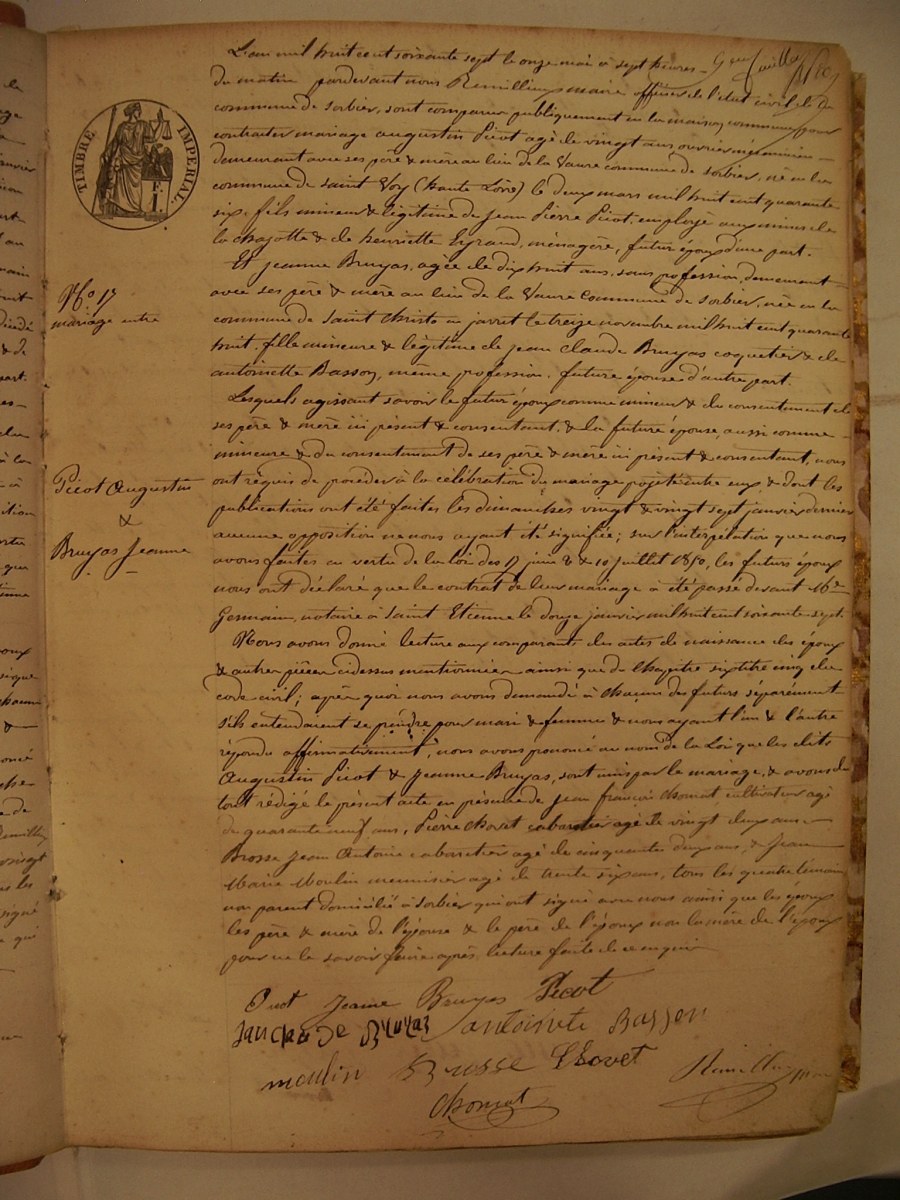 L'an mil huit cent soixante sept le onze mai à sept heures
du matin pardevant nous Remillieux maire officier de l'état civil de la
commune de Sorbier, sont comparus publiquement en la maison commune pour
contracter mariage augustin Picot agé de vingt ans, ouvrier mineur
demeurant avec ses père & mère au lieu de la Vaure commune de Sorbier, né en la
commune de Saint Voy (haute Loire) le deux mars mil huit cent quarante
six, fils mineur & légitime de Jean Pierre Picot, employé aux mines de
la Chazotte & de henriette Eyraud, ménagère, futur époux d'une part.
Et Jeanne Bruyas, agée de dix huit ans, sans profession, demeurant
avec ses père & mère au lieu de la Vaure commune de Sorbier, née en la
commune de Saint Christo en jarret le treize novembre mil huit cent quarante
huit, fille mineure & légitime de jean Claude Bruyas coquetier & de
antoinette Basson, même profession, future épouse d'autre part.
Lesquels agissant savoir le futur époux comme mineur & du consentement de
ses père & mère ici présent & consentant, & la future épouse, aussi comme
mineure & du consentement de ses père & mère ici présent & consentant, nous
ont réquis de procéder à la célébration du mariage projeté entre eux, & dont les
publications ont été faites les dimanches vingt & vingt sept janvier dernier
aucune opposition ne nous ayant été signifiée; sur l'interpélation que nous
avons faites en vertu de la loi des 17 juin & 10 juillet 1850, les futurs époux
nous ont déclaré que le contrat de leur mariage a été passé devant Me
Germain, notaire à Saint Etienne le douze janvier mil huit cent soixante sept.
Nous avons donné lecture aux comparants des actes de naissance des époux
& autres pièces cidessus mentionnées ainsi que du Chapitre six titre cinq du
code civil; après quoi nous avons demandé à chacun des futurs séparément
s'ils entendaient se prendre pour mari & femme & nous ayant l'un & l'autre
répondu affirmativement, nous avons prononcé au nom de la Loi que les dits
Augustin Picot & Jeanne Bruyas, sont unis par le mariage, & avons du
tout rédigé le présent acte en présence de Jean françois Chomat, cultivateur agé
de quarante neuf ans, Pierre Chovet cabaretier agé de vingt deux ans
Brosse Jean Antoine cabaretier agé de cinquantes deux ans, & Jean
Marie Moulin menuisier agé de trente six ans, tous les quatre témoins
non parent domicilié à Sorbier qui ont signé avec nous ainsi que les époux
les père & mère de l'épouse & le père de l'époux non la mère de l'époux
pour ne le savoir faire après lecture faite de ce enquis
TIMBRE IMPERIAL
No 17
mariage entre
Picot Augustin
&
Bruyas Jeanne
Picot Jeanne Bruyas Picot
Jan claude Bruyas antoinete Basson
moulin Brosse Chovet
Chomat Remillieux maire